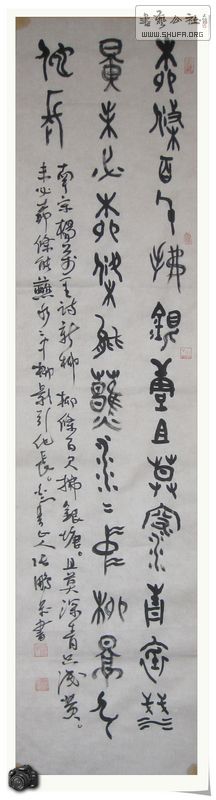 書藝公社
WWW.SHUFA.ORG
柳條百尺拂銀塘且莫深青只淺
黃未必柳條能蘸水=中柳影引
他長
南宋楊万里詩新柳 柳條百尺拂銀塘。且莫深青只浅黄。
未必柳條能蘸水=中柳影引他長。山人張鵬書